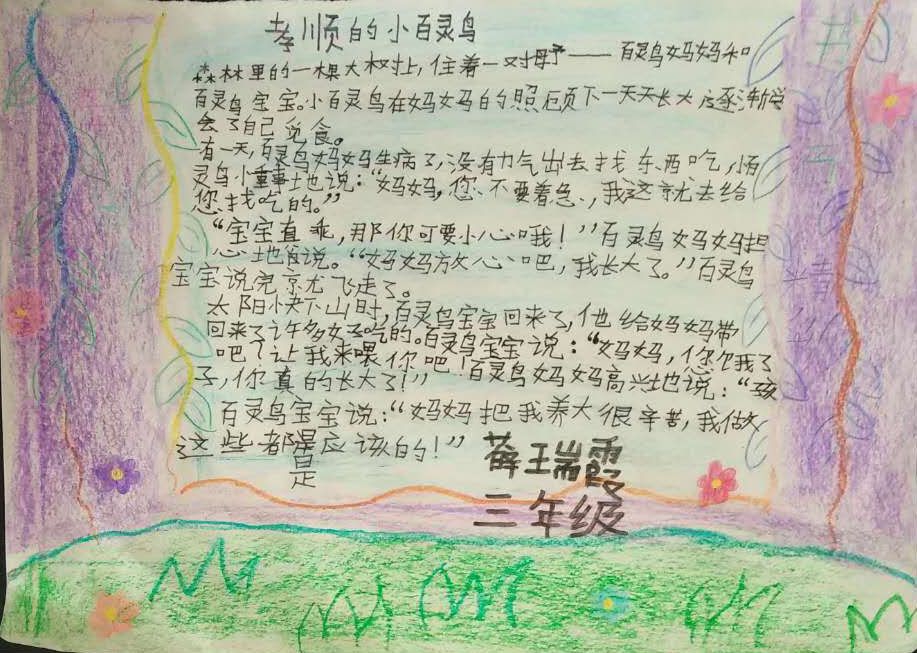 孝顺的小百灵鸟
森林里的一棵大树上，住着一对母子——百灵鸟妈妈和
百灵鸟宝宝。小百灵鸟在妈妈的照顾下一天天长大，逐渐学
会了自己觅食。
有一天，百灵鸟妈妈生病了，没有力气出去找东西吃，百
灵鸟小董事地说：“妈妈，您不要着急，我这就去给
您找吃的。”
“宝宝真乖，那你可要小心哦！”百灵鸟妈妈担
心地说。“妈妈放心吧，我长大了。”百灵鸟
宝宝说完就飞走了。
太阳快下山时，百灵鸟宝宝回来了，他给妈妈带
回来了许多好吃的。百灵鸟宝宝说：“妈妈，您饿了
吧？让我来喂你吧！百灵鸟妈妈高兴地说：“孩
子，你真的长大了！”
百灵鸟宝宝说：“妈妈把我养大很辛苦，我做
这些都是应该的！”
是
薛瑞霞
三年级